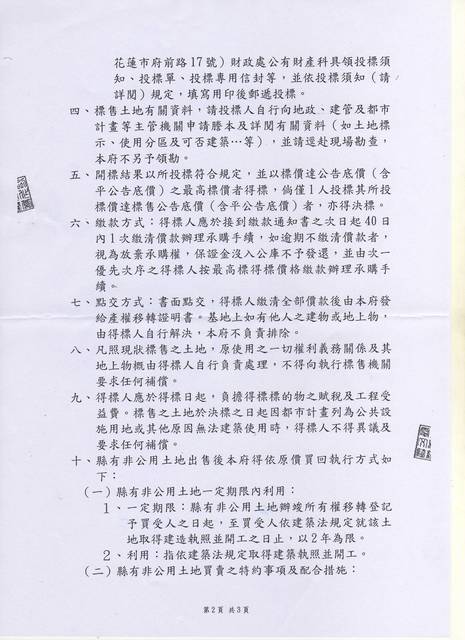 花蓮市府前路17號）財政處公有財產科具領投標須
知、投標單、投標專用信封等，並依投標須知（請
詳閱）規定，填寫用印後郵遞投標。
四、標售土地有關資料，請投標人自行向地政、建管及都市
計畫等主管機關申請謄本及詳閱有關資料（如土地標
示、使用分區及可否建築…等），並請逕赴現場勘查，
本府不另予領勘。
五、開標結果以所投標符合規定，並以標價達公告底價（含
平公告底價）之最高標價者得標，倘僅1人投標其所投
標價達標售公告底價（含平公告底價）者，亦得決標。
六、繳款方式：得標人應於接到繳款通知書之次日起40日
內1次繳清價款辦理承購手續，如逾期不繳清價款者，
視為放棄承購權，保證金沒入公庫不予發還，並由次一
優先次序之得標人按最高標得標價格繳款辦理承購手
續。
七、點交方式：書面點交，得標人繳清全部價款後由本府發
給產權移轉證明書。基地上如有他人之建物或地上物，
由得標人自行解決，本府不負責排除。
八、凡照現狀標售之土地，原使用之一切權利義務關係及其
地上物概由得標人自行負責處理，不得向執行標售機關
要求任何補償。
九、得標人應於得標日起，負擔得標標的物之賦稅及工程受
益費。標售之土地於決標之日起因都市計畫列為公共設
施用地或其他原因無法建築使用時，得標人不得異議及
要求任何補償。
十、縣有非公用土地出售後本府得依原價買回執行方式如
下：
（一）縣有非公用土地一定期限內利用：
1、一定期限：縣有非公用土地辦竣所有權移轉登記
予買受人之日起，至買受人依建築法規定就該土
地取得建造執照並開工之日止，以2年為限。
2、利用：指依建築法規定取得建築執照並開工。
（二）縣有非公用土地買賣之特約事項及配合措施：
第2頁 共3頁